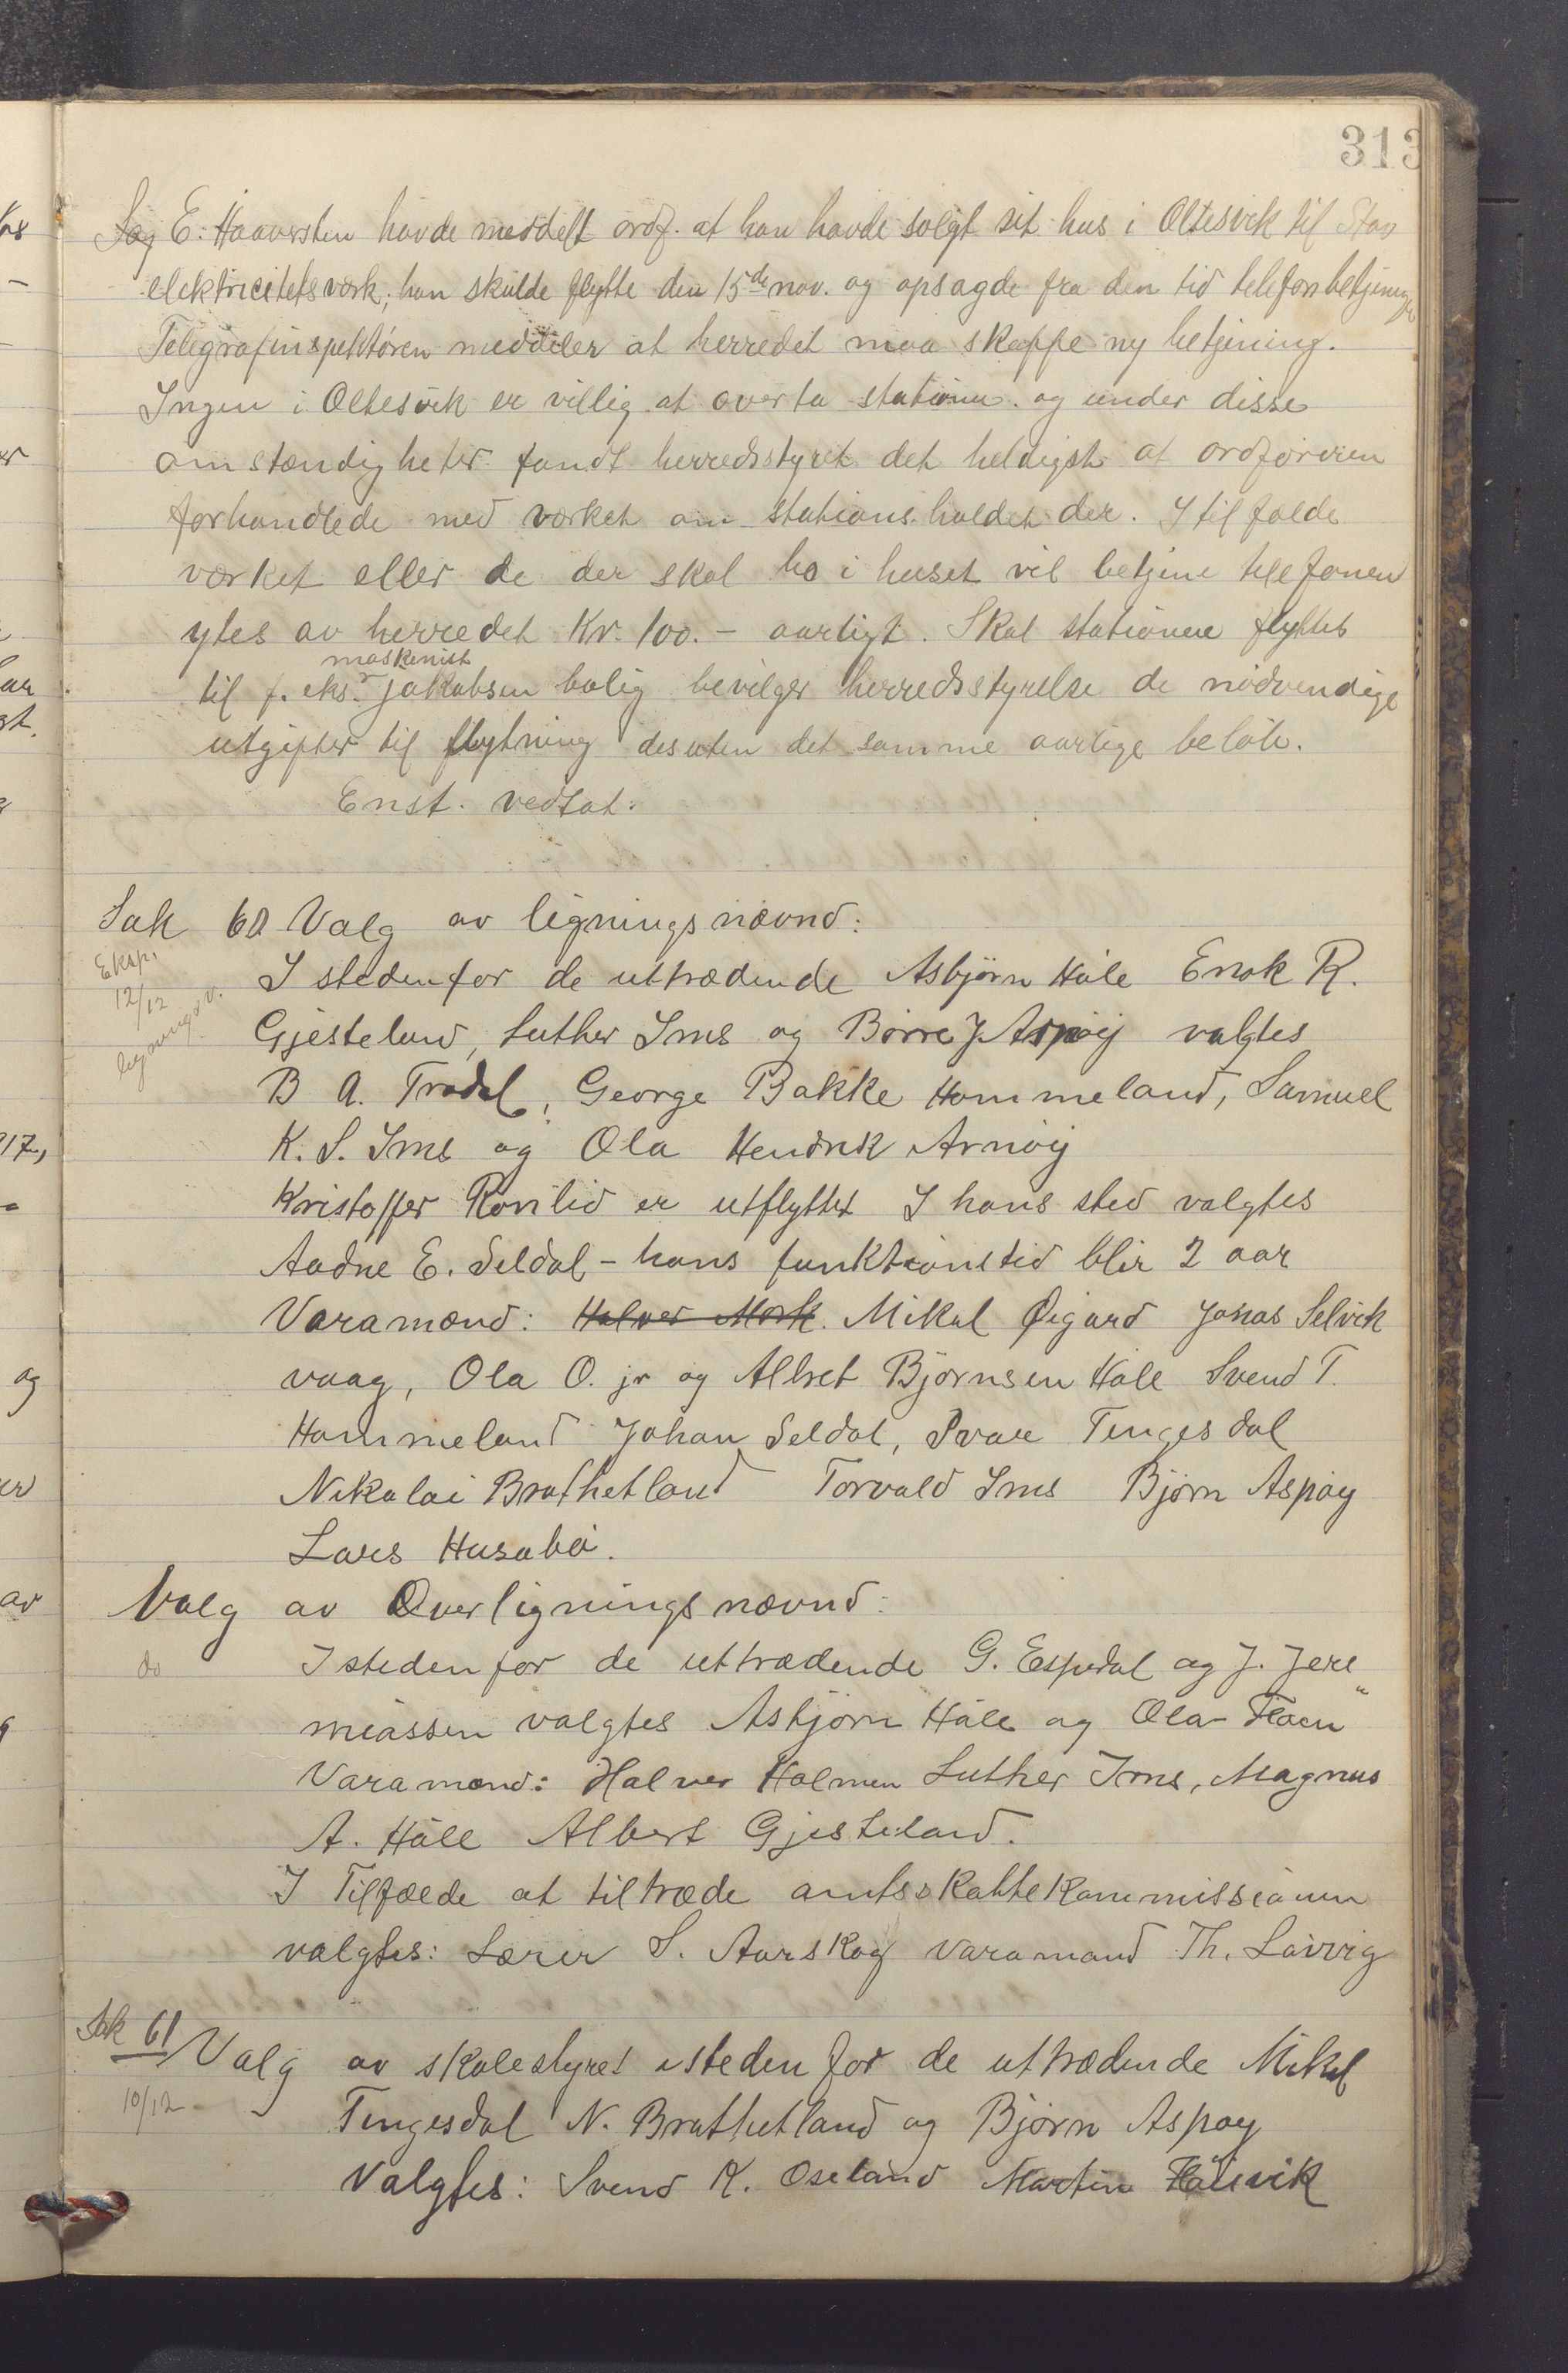 313
E. Haaversten havde meddelt ordf. at han havde solgt sit hus i Oltesvik til Stav
elektricitetsverk; han skulde flytte den 15de nov. og opsagde fra den tid telefonbetjeningen
Telegrafinspektøren meddeler at herredet maa skaffe ny betjening.
Ingen i Oltesvik er villig at overta stationen og under disse
omstændigheter fandt herredsstyret det heldigst at ordføreren
forhandlede med verket om stationsholdet der. I tilfælde
verket eller de der skal bo i huset vil betjene telefonen
ytes av herredet Kr. 100.- aarligt. Skal stationen flyttes
maskinist
til f. eks. Jakobsen bolig bevilger herredsstyrelse de nødvendige
utgifter til flytning desuten det samme aarlige beløb.
Enst. vedtat.
Sak 60 Valg av ligningsnævnd:
Eksp.
12/12
ligningsv.
I stedenfor de uttrædende Asbjørn Håle Enok R.
Gjesteland, Luther Ims og Børre J. Aspøy valgtes
B A. Tradal, George Bakke Hommeland, Samuel
K. S. Ims og Ola Hendrik Arnøy
Kristoffer Rovilid er utflyttet I hans sted valgtes
Aadne E. Seldal - hans funktionstid blir 2 aar
Varamænd: Halver Mork. Mikal Øigard Jonas Selvik
vaag, Ola O. jr og Albret Bjørnsen Håle Svend T.
Hommeland Johan Seldal, Ivar Tengesdal
Nikolai Brathetland Torvald Ims Bjørn Aspøy
Lars Husabø.
Valg av Overligningsnævnd:
do
I stedenfor de uttrædende G. Espedal og J. Jere"
miassen valgtes Asbjørn Håle og Ola Floen
Varamænd: Halver Holmen Luther Ims, Magnus
A. Håle Albert Gjesteland.
I Tilfælde at tiltræde amtsskattekommissionen
valgtes: Lærer S. Aarskog varamand Th. Løvvig
Sak 61
Valg av skolestyret isteden for de uttrædende Mikal
10/12
Tengesdal N. Brathetland og Bjørn Aspøy
Valgtes: Svend K. Oseland Martin Hålevik